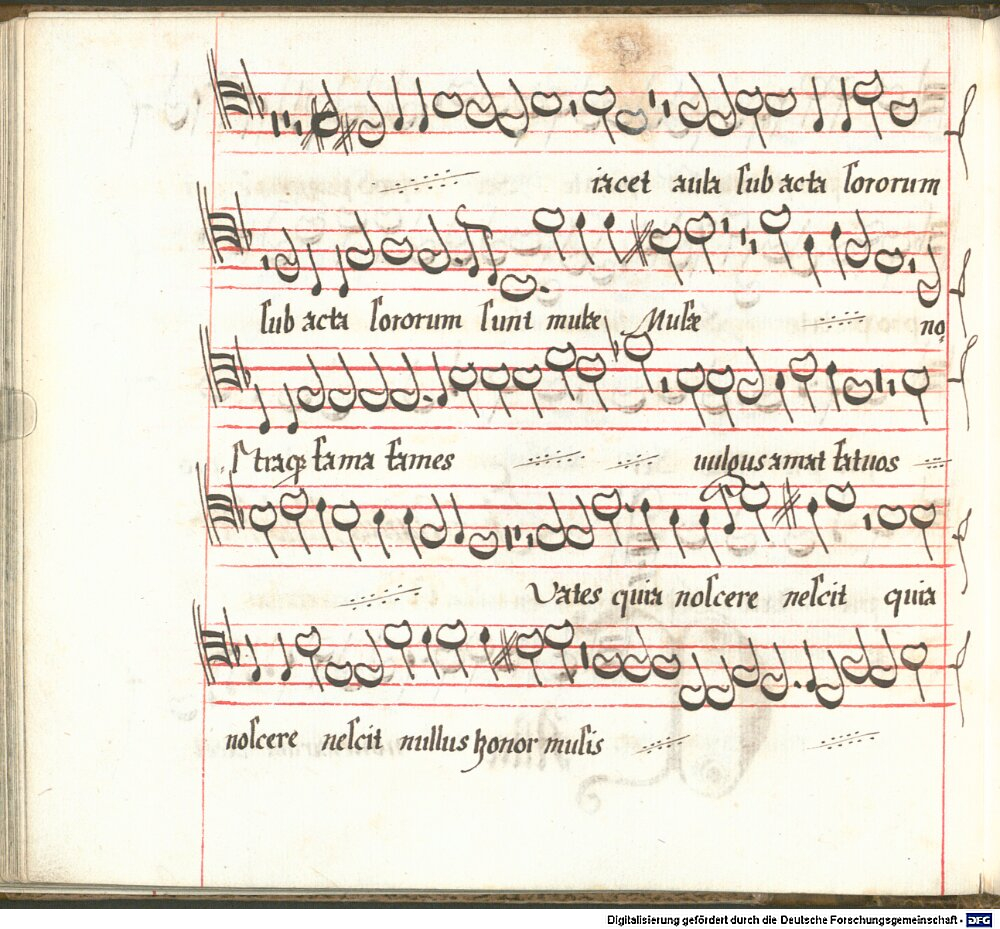 iacet aula ſub acta ſororum
ſub acta ſororum ſunt mutæ Muſæ no
ſtraq; fama fames uulgus amat fatuos
Vates quia noſcere neſcit quia
noſcere neſcit nullus honor muſis
Digitalisierung gefördert durch die Deutsche Forschungsgemeinschaft - DFG